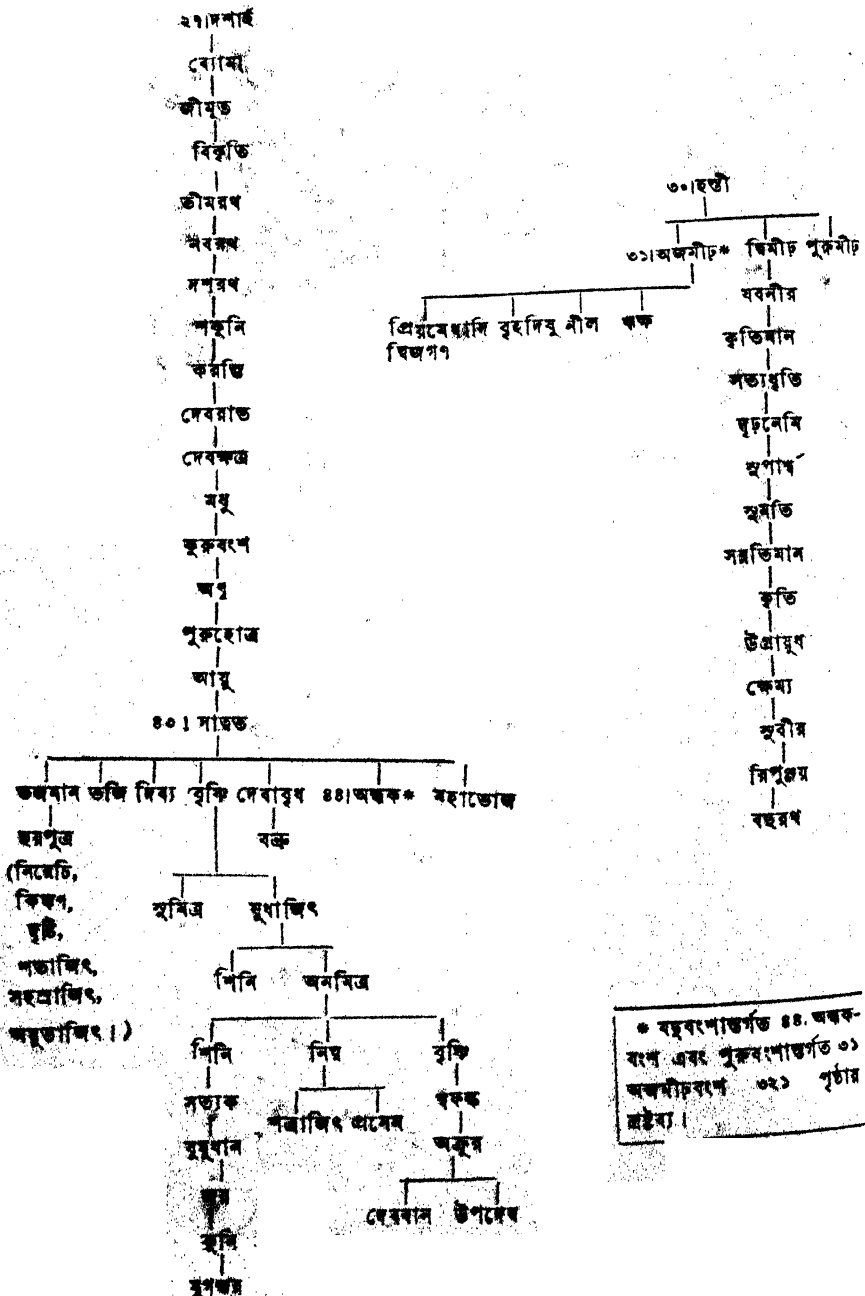 ২৭।দশার্হ
ব্যোমা
জীমূত
বিকৃতি
ভীমরথ
নবরথ
দশরথ
শকুনি
করম্ভি
দেবরাত
দেবক্ষত্র
মধু
কুরুবংশ
অণু
পুরুহোত্র
আয়ু
৪০। সাত্বত
ভজমান ভজি দিব্য বৃষ্ণি দেবাবৃধ ৪৪।অন্ধক* মহাভোজ
ছয়পুত্র
(নিম্লোচি,
কিঙ্কণ,
ধৃষ্টি,
শতাজিৎ,
সহস্রাজিৎ,
অযুতাজিৎ।)
বভ্রু
সুমিত্র যুধাজিৎ
শিনি অনমিত্র
শিনি নিঘ্ন বৃষ্ণি
সত্যক
যুযুধান
জয়
কুনি
যুগন্ধর
সত্রাজিৎ প্রসেন
শ্বফল্ক
অক্রুর
দেববান উপদেব
৩০।হস্তী
৩১।অজমীঢ়* দ্বিমীঢ় পুরুমীঢ়
প্রিয়মেধাদি বৃহদিষু নীল ঋক্ষ
দ্বিজগণ
যবনীর
কৃতিমান
সত্যধৃতি
দৃঢ়নেমি
সুপার্শ্ব
সুমতি
সন্নতিমান
কৃতি
উগ্রায়ুধ
ক্ষেম্য
সুবীর
রিপুঞ্জয়
বহুরথ
* যদুবংশান্তর্গত ৪৪. অন্ধক-
বংশ এবং পুরুবংশান্তর্গত ৩১
অজমীঢ়বংশ ৩২১ পৃষ্ঠায়
দ্রষ্টব্য।